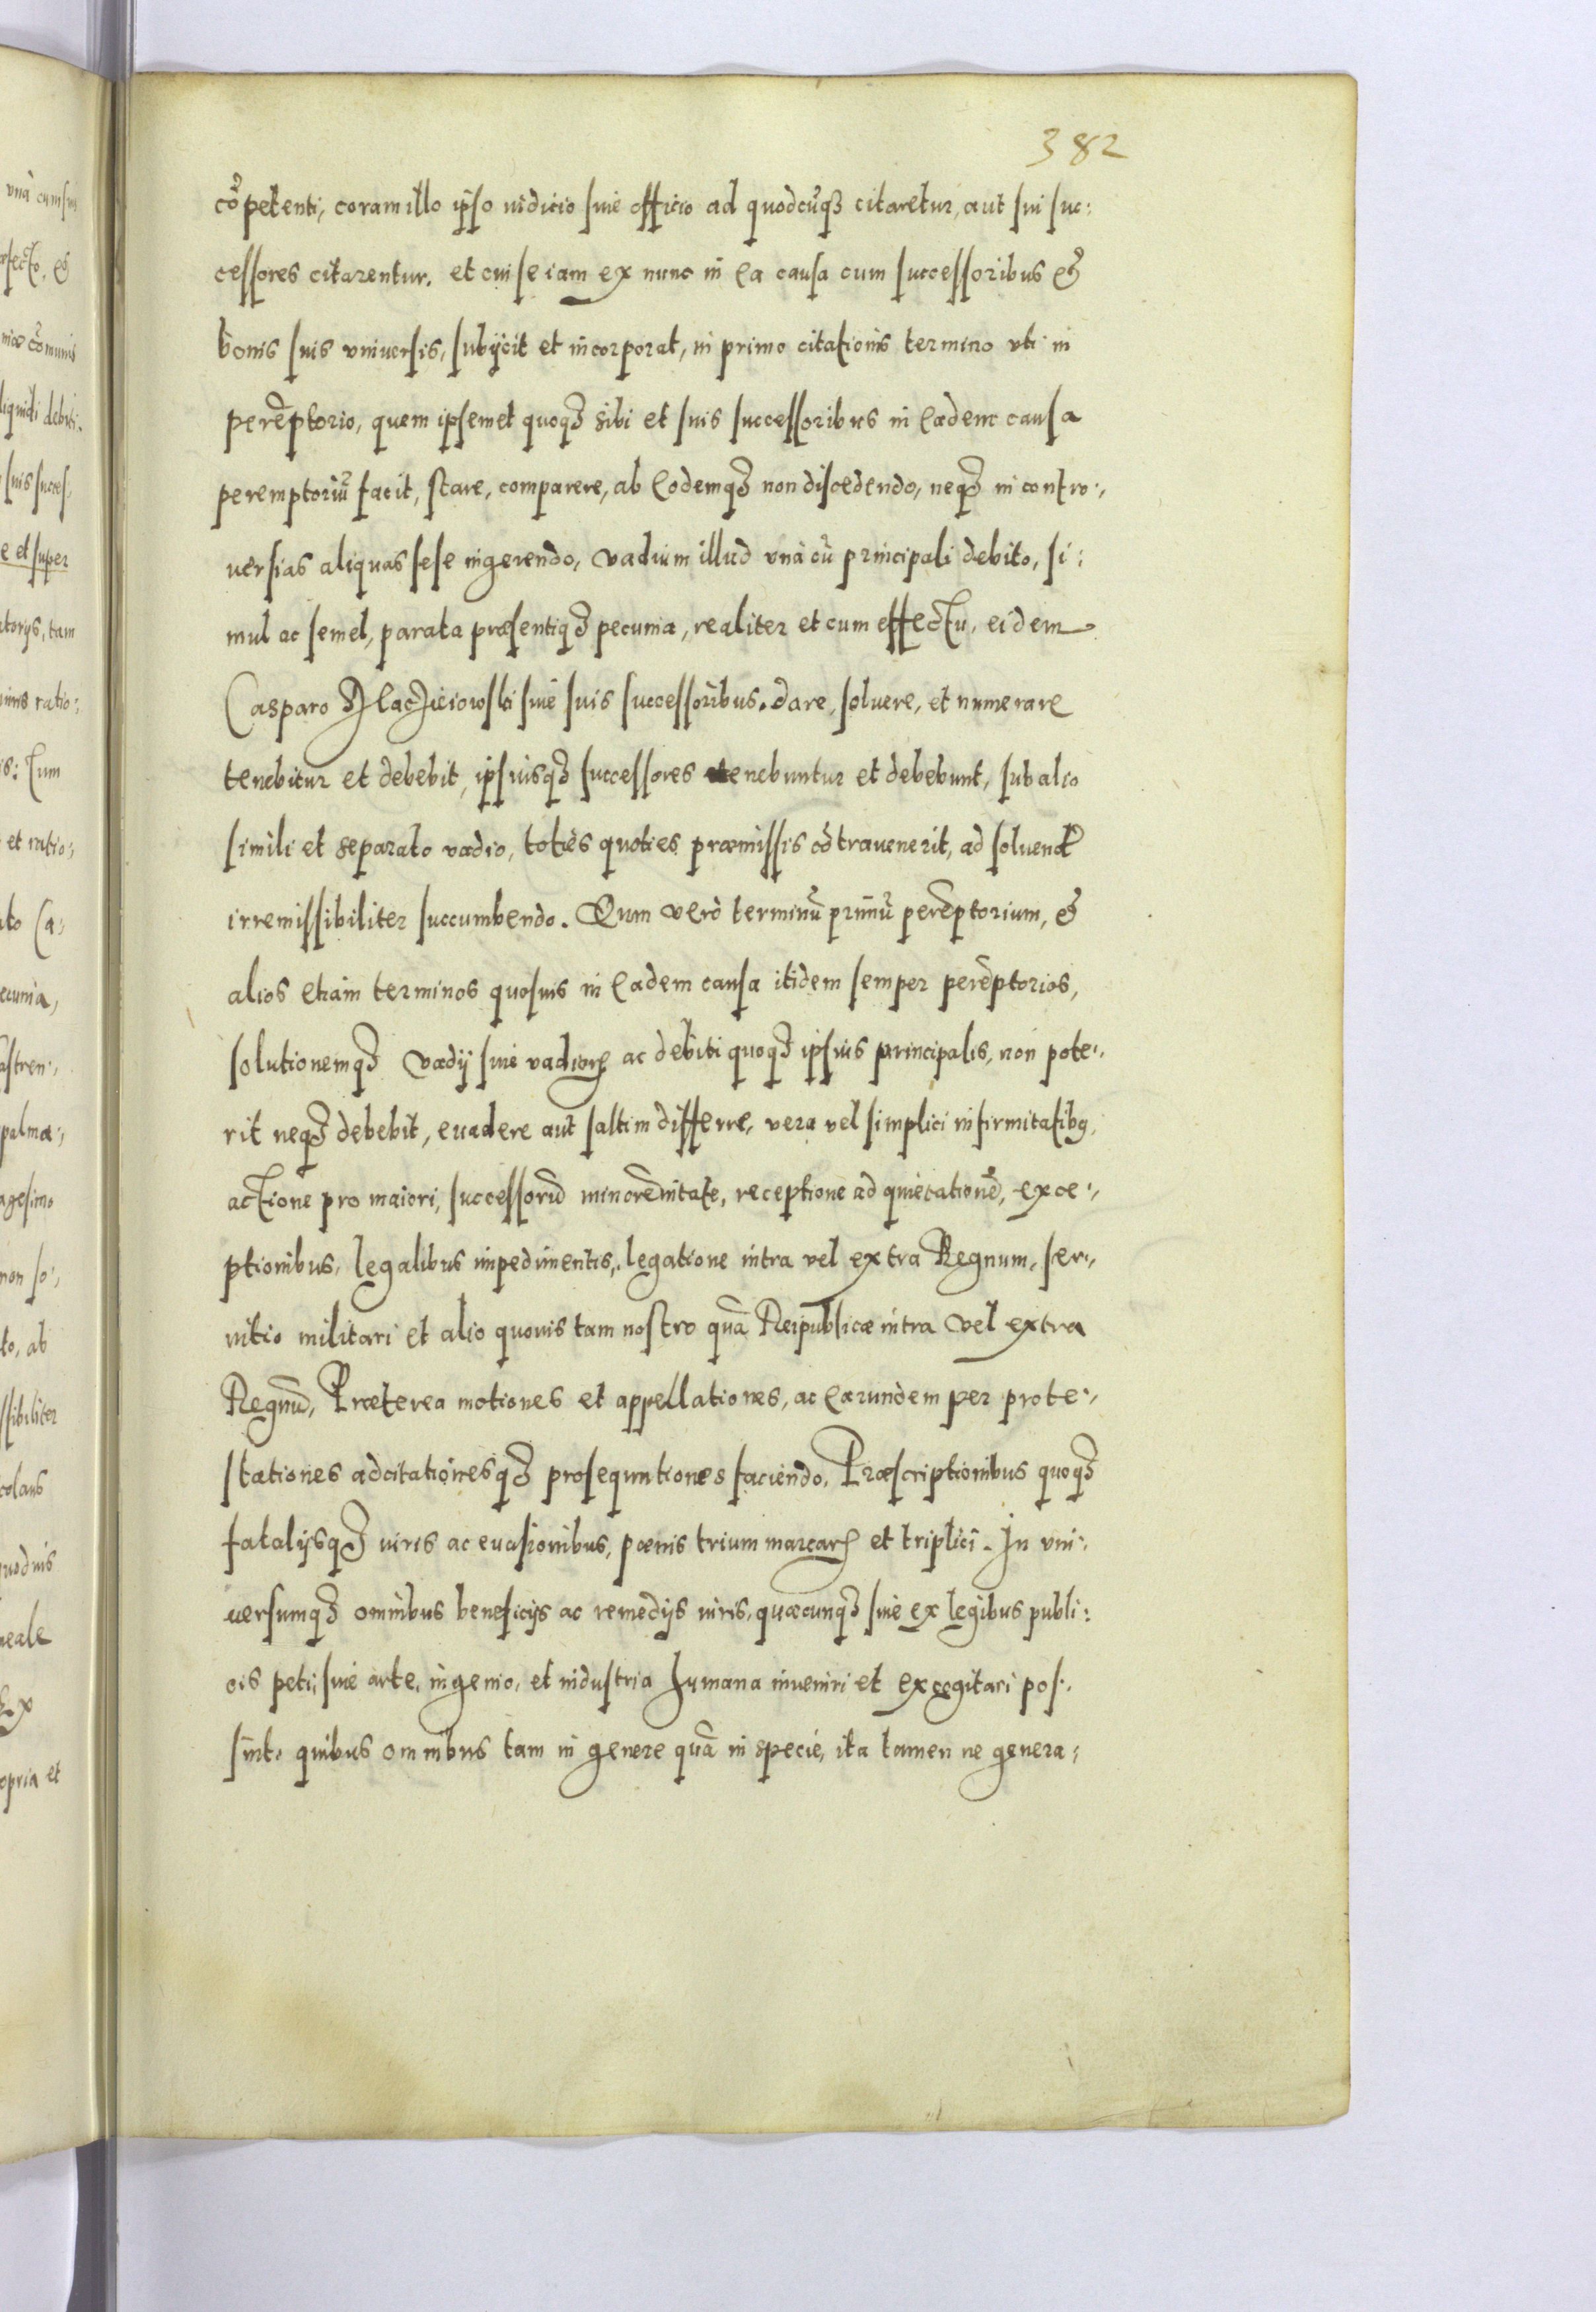 382
cõpetenti, coram illo ipso iudicio siue officio ad quodcũqȝ citaretur, aut sui suc:
cessores citarentur. et cui se iam ex nunc in ea causa cum successoribus et
bonis suis vniuersis, subijcit et incorporat, in primo citationis termino vti in
perẽptorio, quem ipsemet quoqȝ sibi et suis successoribus in eadem causa
peremptoriũ facit, stare, comparere, ab eodemqȝ non discedendo, neqȝ in contro:,
uersias aliquas sese ingerendo, vadium illud vnà cũ principali debito, si:
mul ac semel, parata præsentiqȝ pecunia, realiter et cum effectu, eidem
Casparo siue suis successoribus. dare, soluere, et numerare
tenebitur et debebit, ipsiusqȝ successores tenebuntur et debebunt, sub alio
simili et separato vadio, toties quoties præmissis cõtrauenerit, ad soluendũ
irremissibiliter succumbendo. Quem verò terminũ primũ perẽptorium, et
alios etiam terminos quosuis in eadem causa itidem semper perẽptorios,
solutionemqȝ vadij siue vadiorꝝ ac debiti quoqȝ ipsius principalis, non pote:,
rit neqȝ debebit, euadere aut saltim differre, vera vel simplici infirmitatibꝫ,
actione pro maiori, successorũ minorẽnitate, receptione ad quietationẽ, exce:,
ptionibus, legalibus impedimentis, legatione intra vel extra Regnum, ser:,
uitio militari et alio quouis tam nostro quã Reipublicæ intra vel extra
Regnũ, Præterea motiones et appellationes, ac earundem per prote:,
stationes adcitationesqȝ prosequutiones faciendo, Præscriptionibus quoqȝ
fatalijsqȝ iuris ac euasionibus, pœnis trium marcarꝝ et triplici. In vni:,
uersumqȝ omnibus beneficijs ac remedijs iuris, quæcunqȝ siue ex legibus publi:
cis peti, siue arte, ingenio, et industria humana inueniri et excogitari pos:,
sint. quibus omnibus tam in genere quã in specie, ita tamen ne genera: